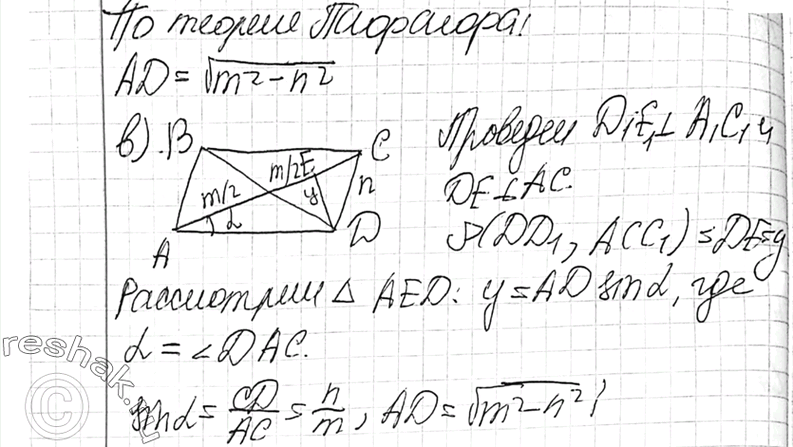 По теореме Пифагора:
AD = √m² - n²
в). B C
m/2 m/2 E y n
A α D
Проведем D₁E₁⊥A₁C₁ и
DE⊥AC.
ρ(DD₁, ACC₁) = DE = y
Рассмотрим △ AED: y = AD sin α, где
α = ∠DAC.
sin α = CD/AC = n/m, AD = √m² - n² ;
reshak.ru
©